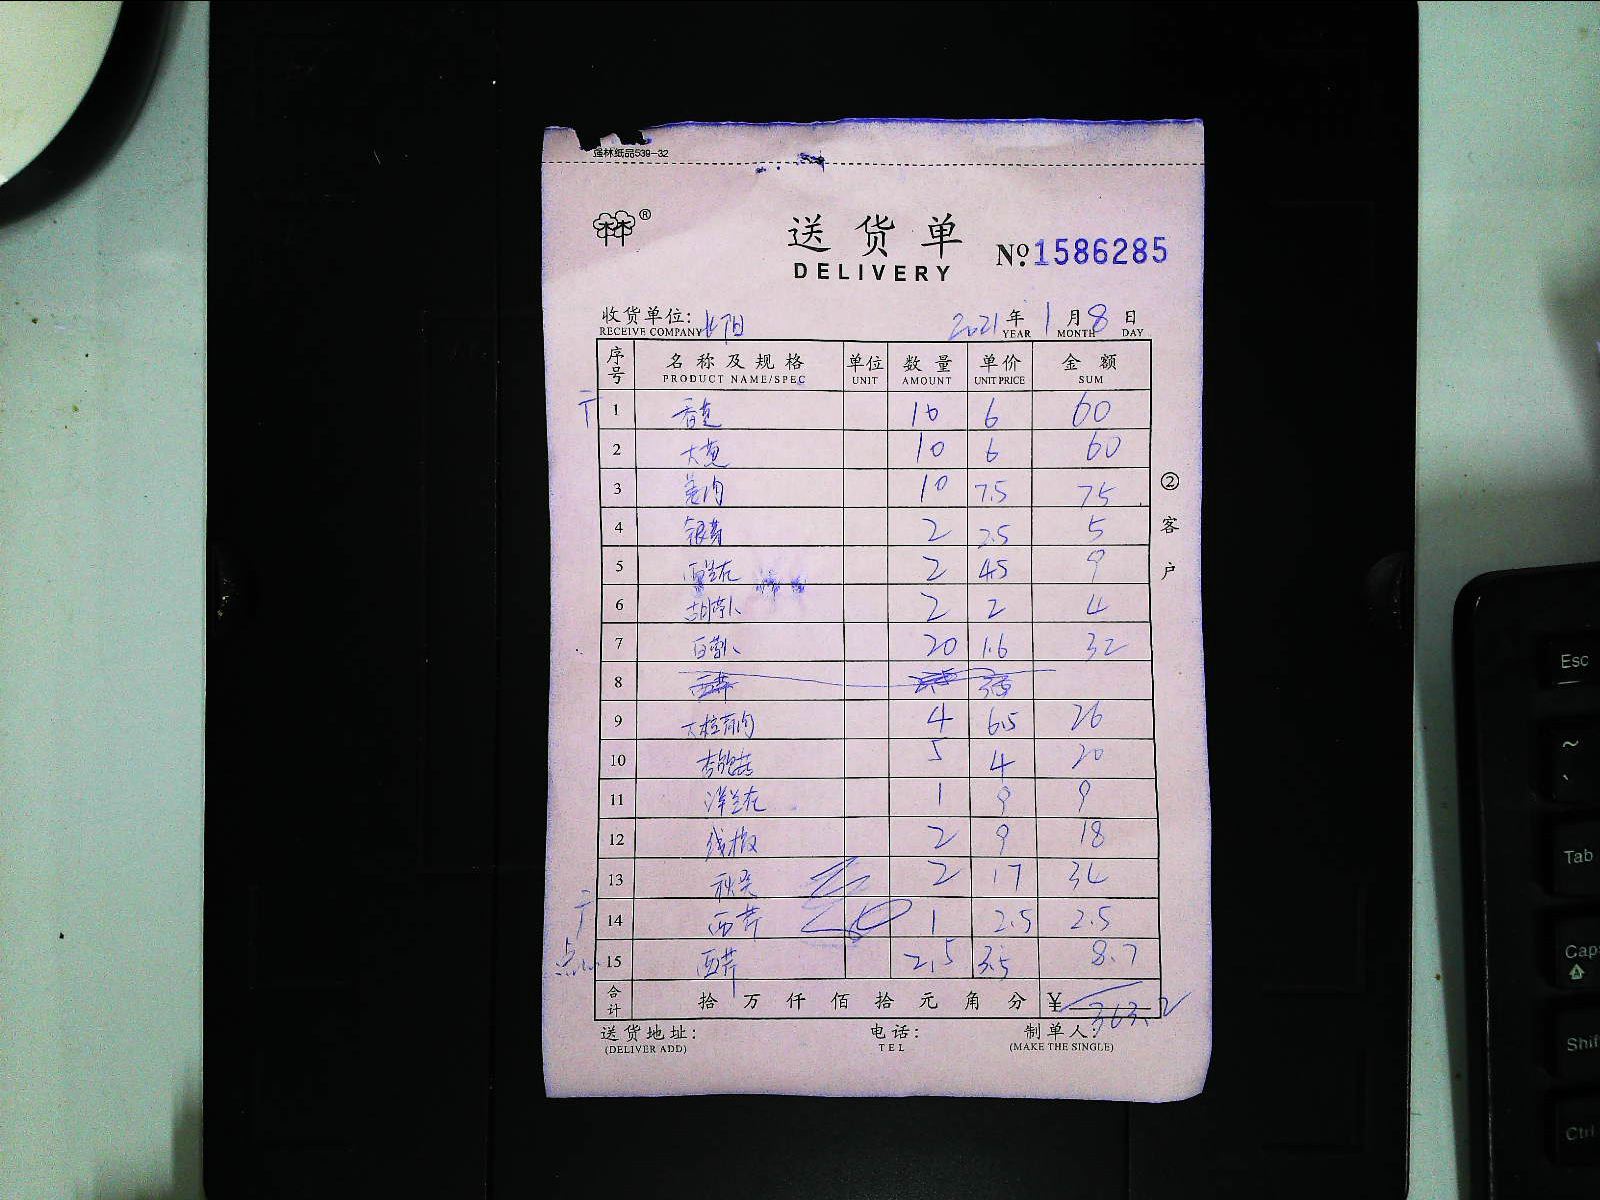 强林纸品539-32
林®
送货单
DELIVERY
№1586285
收货单位: 2021年1月8日
RECEIVE COMPANY YEAR MONTH DAY
序号 名称及规格 单位 数量 单价 金额
PRODUCT NAME/SPEC UNIT AMOUNT UNIT PRICE SUM
1 10 6 60
2 大葱 10 6 60
3 姜肉 10 7.5 75
4 银芽 2 2.5 5
5 西兰花 2 4.5 9
6 胡萝卜 2 2 4
7 白萝卜 20 1.6 32
8
9 4 6.5 26
10 杏鲍菇 5 4 20
11 洋兰花 1 9 9
12 线椒 2 9 18
13 秋葵 2 17 34
14 西芹 1 2.5 2.5
点心 15 西芹 2.5 3.5 8.7
合计 拾万仟佰拾元角分 ¥363.2
送货地址: 电话: 制单人:
(DELIVER ADD) TEL (MAKE THE SINGLE)
②客户
Esc
~
`
Tab
Caps
Shift
Ctrl